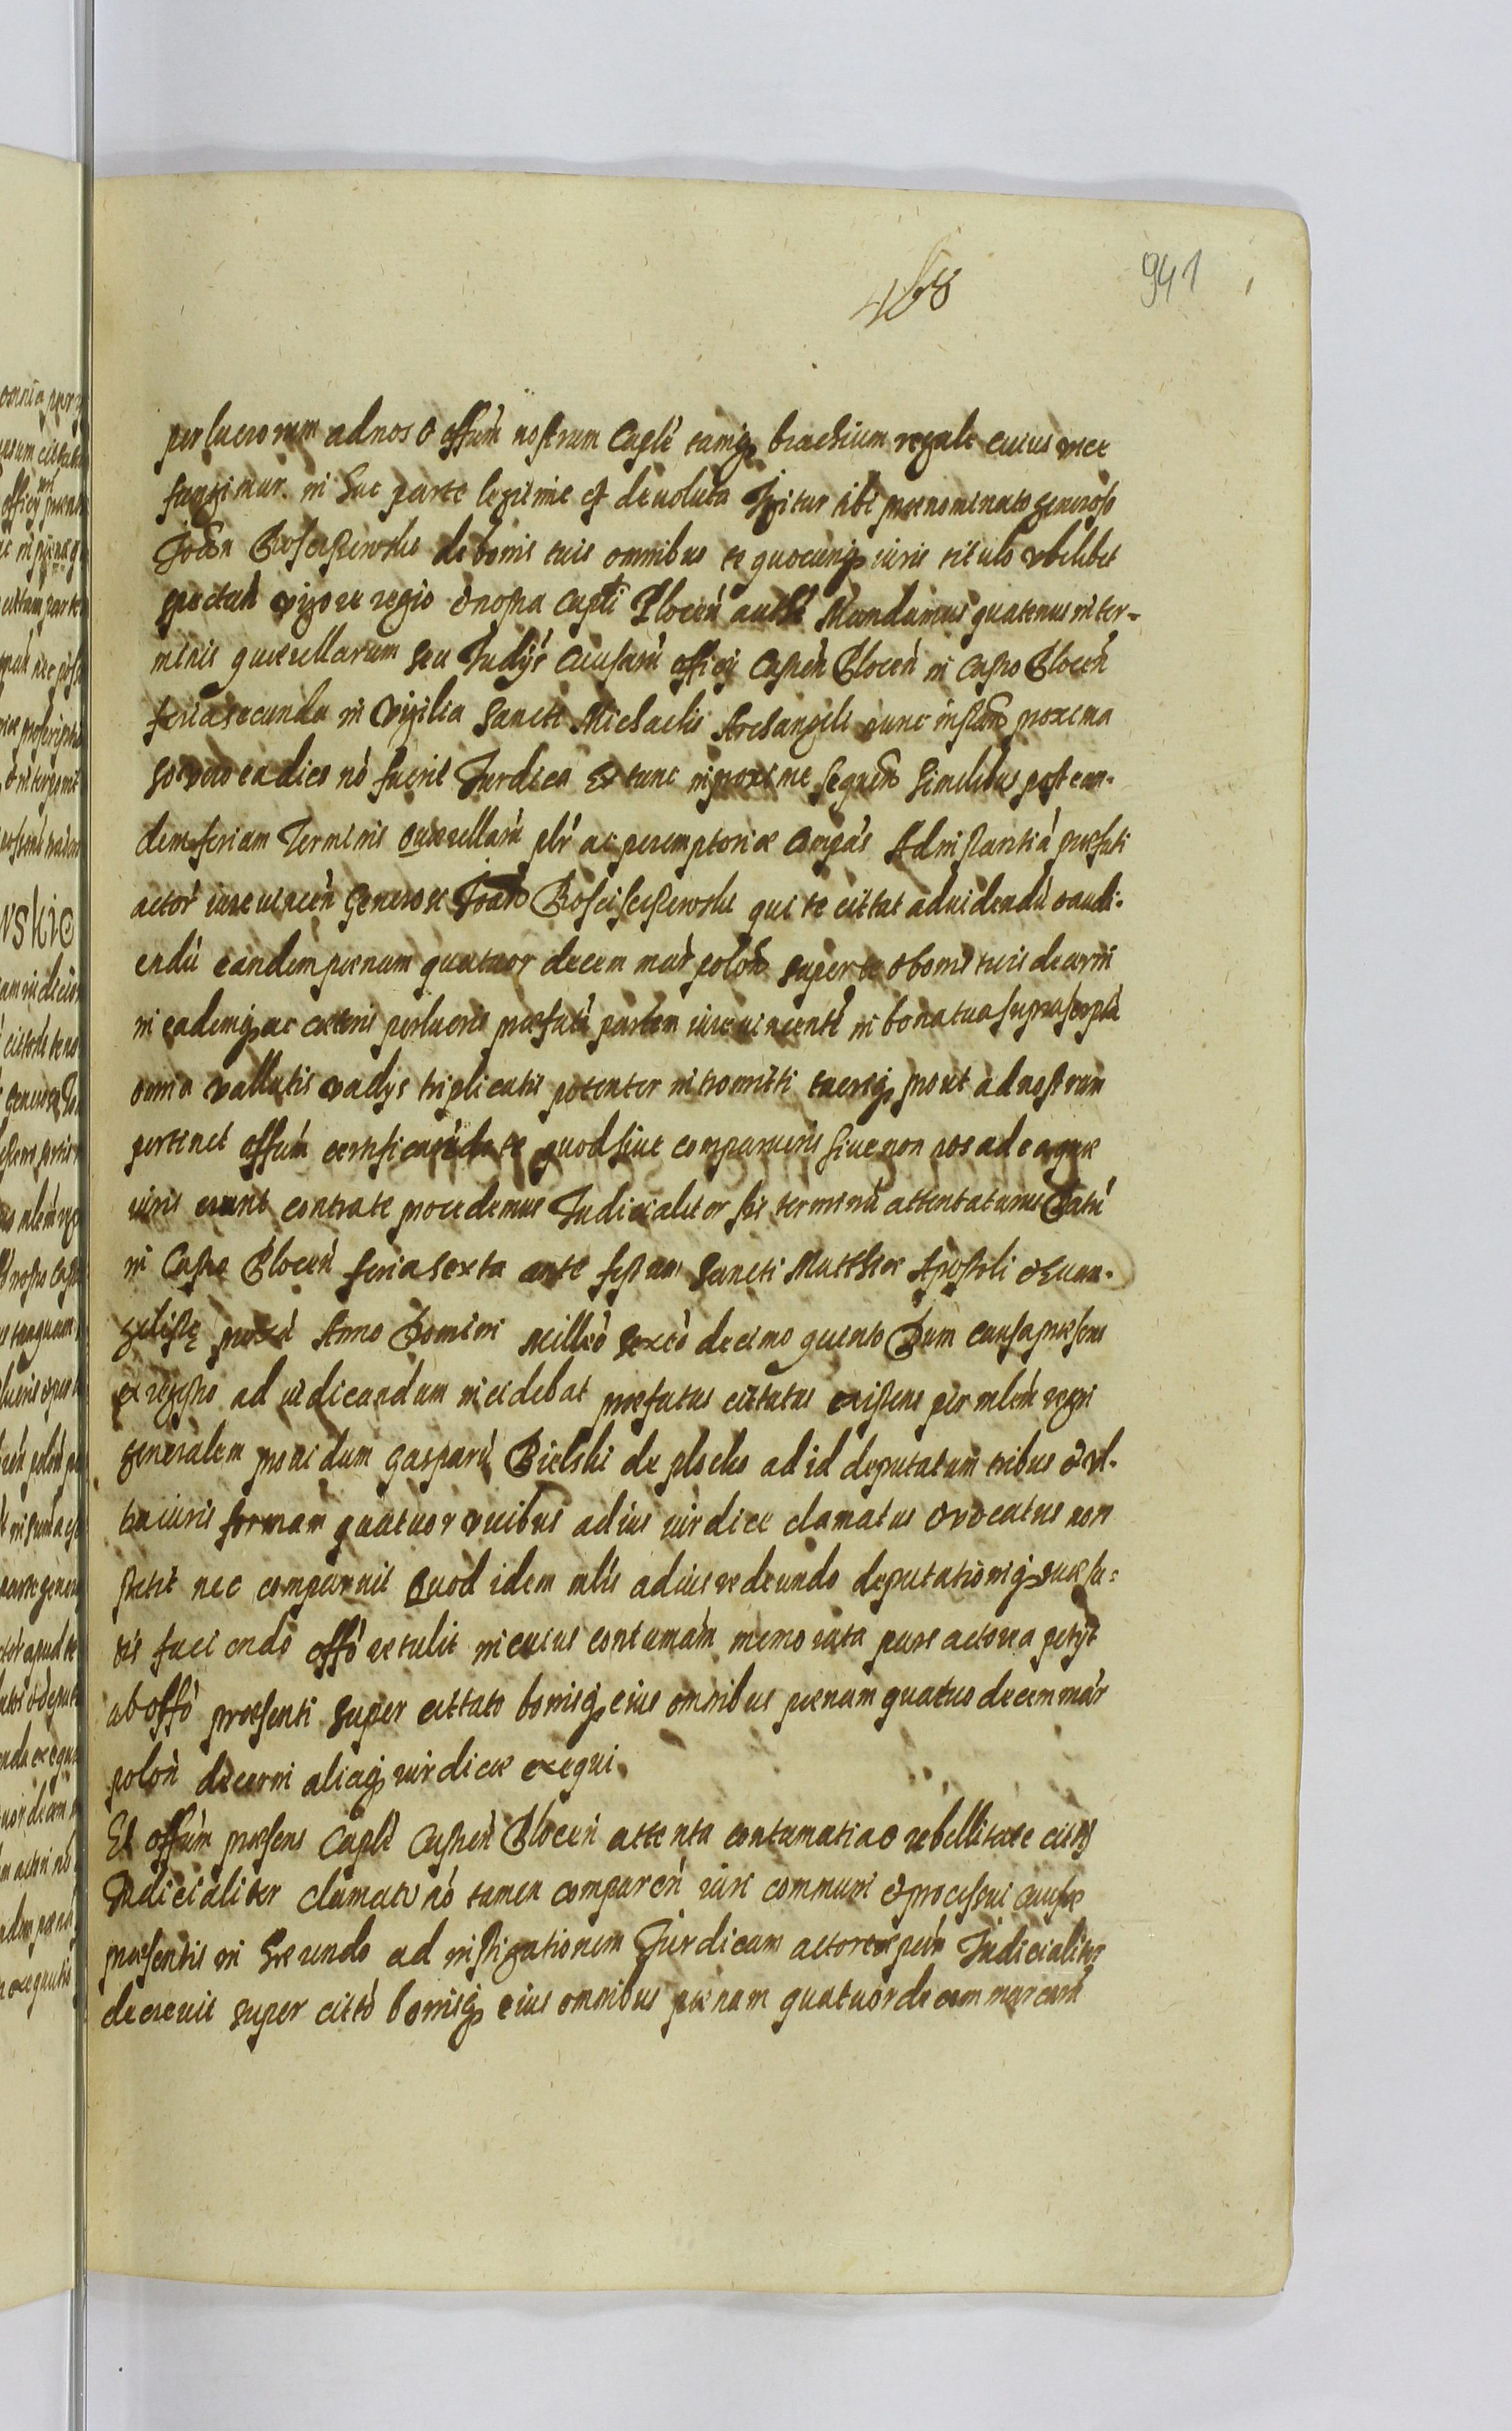 941
perlucrorum ad nos & offum nostrum Caple tamq brachium regale cuius vice
fungimur in hac parte legitime est devoluta Igitur tibi praenominato generoso
Joan Rosciszewski de bonis tuis omnibus te quocunq iuris titulo vbilibet
spectan vigore regio & nostra Capli Plocen autte Mandamus quatenus in ter-
minis querellarum seu Judys Causarū officy Castren Plocen in Castro Plocen
feria secunda in Vigilia Sancti Michaelis Archangeli nunc instan proxima
vero ea dies nō fuerit Jurdica Ex tunc in proxime sequen similibus post ean-
dem feriam Terminis Querellarū plr ac peremptoriae compas Ad instantiā praefati
actor iure vincen Generosi Joan Rosciszewski qui te cittat ad videndū & audi-
endū eandem paenam quatuor decem mar polon super te & bonis tuis decerni
in eademq ac caeteris perlucris praefatā partem iure vincentē in bona tua suprascripta
omnia vallatis vadys triplicatis potenter intromitti tuerisq prout ad nostrum
pertinet offum certificando te quod sive comparueris sive non nos ad ea quae
iuris erunt contra te procedemus Judicialiter his terminū attentaturus Datū
in Castro Plocen feria sexta ante festum Sancti Matthaei Apostoli & Evan-
gelistę proxi Anno Domini Milleō sexcō decimo quinto Dum causa praesens
ex regestro ad iudicandum incidebat praefatus cittatus existens per mlem regni
generalem providum Gasparū Bielski de plocko ad id deputatum tribus & vl-
tra iuris formam quatuor vicibus ad ius iurdice clamatus & vocatus non
stetit nec comparuit Quod idem mlis ad ius redeundo deputationiq suae sa-
tis faciendo offō retulit in cuius contumam memorata pars actorea petyt
ab offō praesenti super cittato bonisq eius omnibus paenam quatuordecem mar
polon decerni aliaq iurdice exequi
Et offum praesens Caple Castren Plocen attenta contumatia & rebellitate citti
Judicialiter clamati nō tamen comparen iuri communi & processui causae
praesentis in haerendo ad instigationem Jurdicam actoreae Judicialiter
decrevit super cittō bonisq eius omnibus paenam quatuordecem marcarū